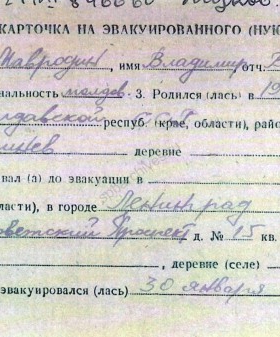 КАРТОЧКА НА ЭВАКУИРОВАННОГО (НУЖ
Мавродин, имя Владимир, отч.
нальность молдов. 3. Родился (лась) в 19
давской респуб. (крае, области), райо
шинев деревне
вал (а) до эвакуации в
ласти), в городе Ленинград
оветский Проспект д. № 15 кв.
, деревне (селе)
эвакуировался (лась) 30 января